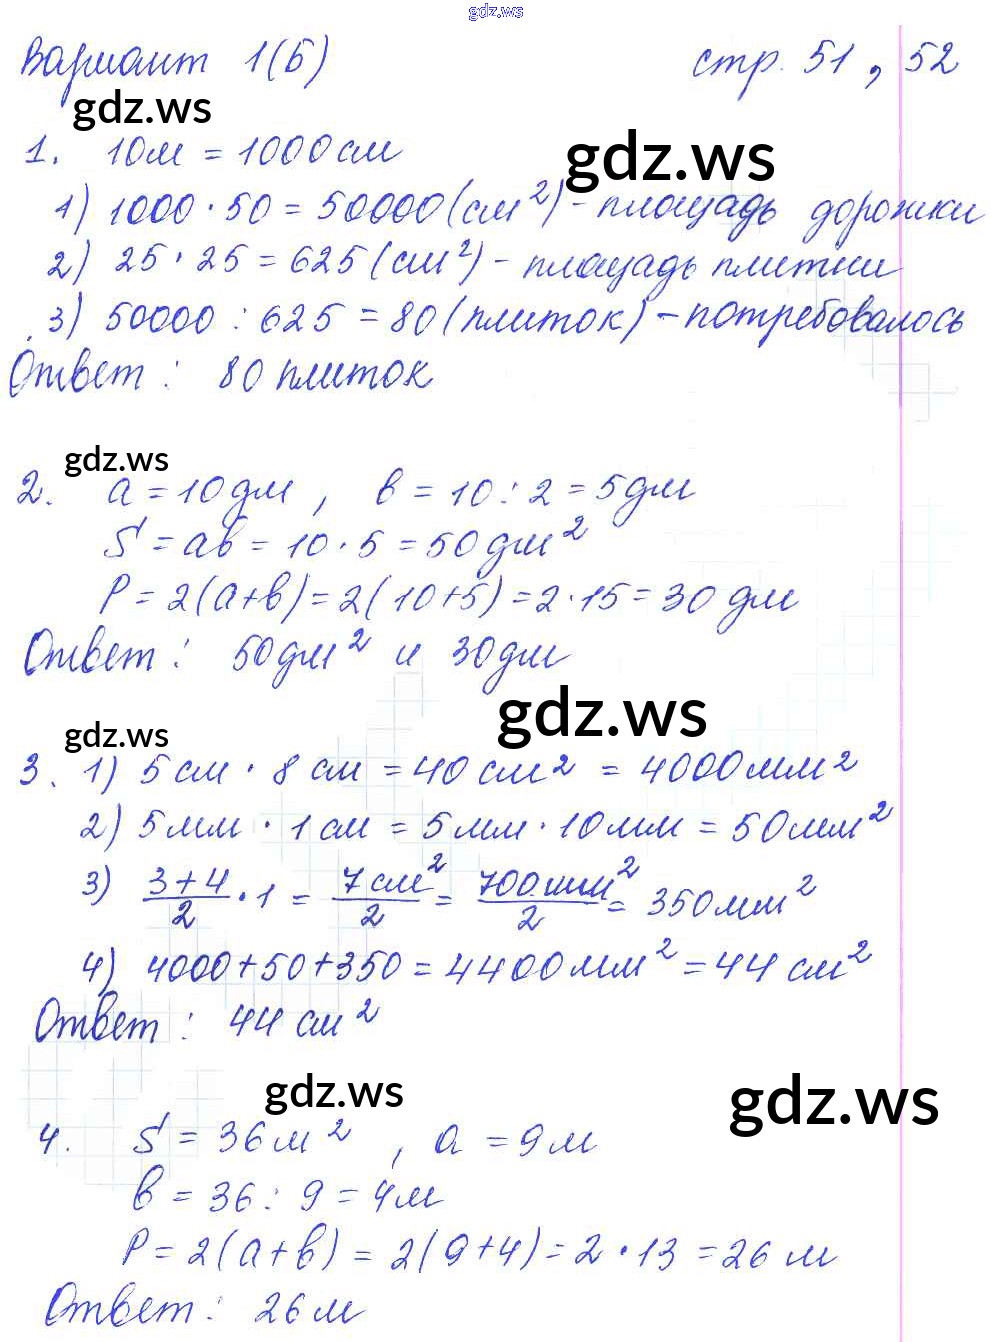 gdz.ws
Вариант 1(Б) стр. 51, 52
gdz.ws
1. 10м = 1000см
gdz.ws
1) 1000 · 50 = 50000 (см²) - площадь дорожки
2) 25 · 25 = 625 (см²) - площадь плитки
3) 50000 : 625 = 80 (плиток) - потребовалось
Ответ : 80 плиток
gdz.ws
2. a = 10дм , в = 10 : 2 = 5дм
S = ав = 10 · 5 = 50дм²
P = 2(a+в) = 2(10+5) = 2·15 = 30 дм
Ответ : 50дм² и 30дм
gdz.ws
gdz.ws
3. 1) 5 см · 8 см = 40 см² = 4000мм²
2) 5мм · 1 см = 5мм · 10мм = 50мм²
3) (3+4)/2 · 1 = 7см²/2 = 700мм²/2 = 350мм²
4) 4000+50+350 = 4400мм² = 44 см²
Ответ : 44 см²
gdz.ws
gdz.ws
4. S = 36м² , a = 9м
в = 36 : 9 = 4м
P = 2(a+в) = 2(9+4) = 2 · 13 = 26 м
Ответ : 26м